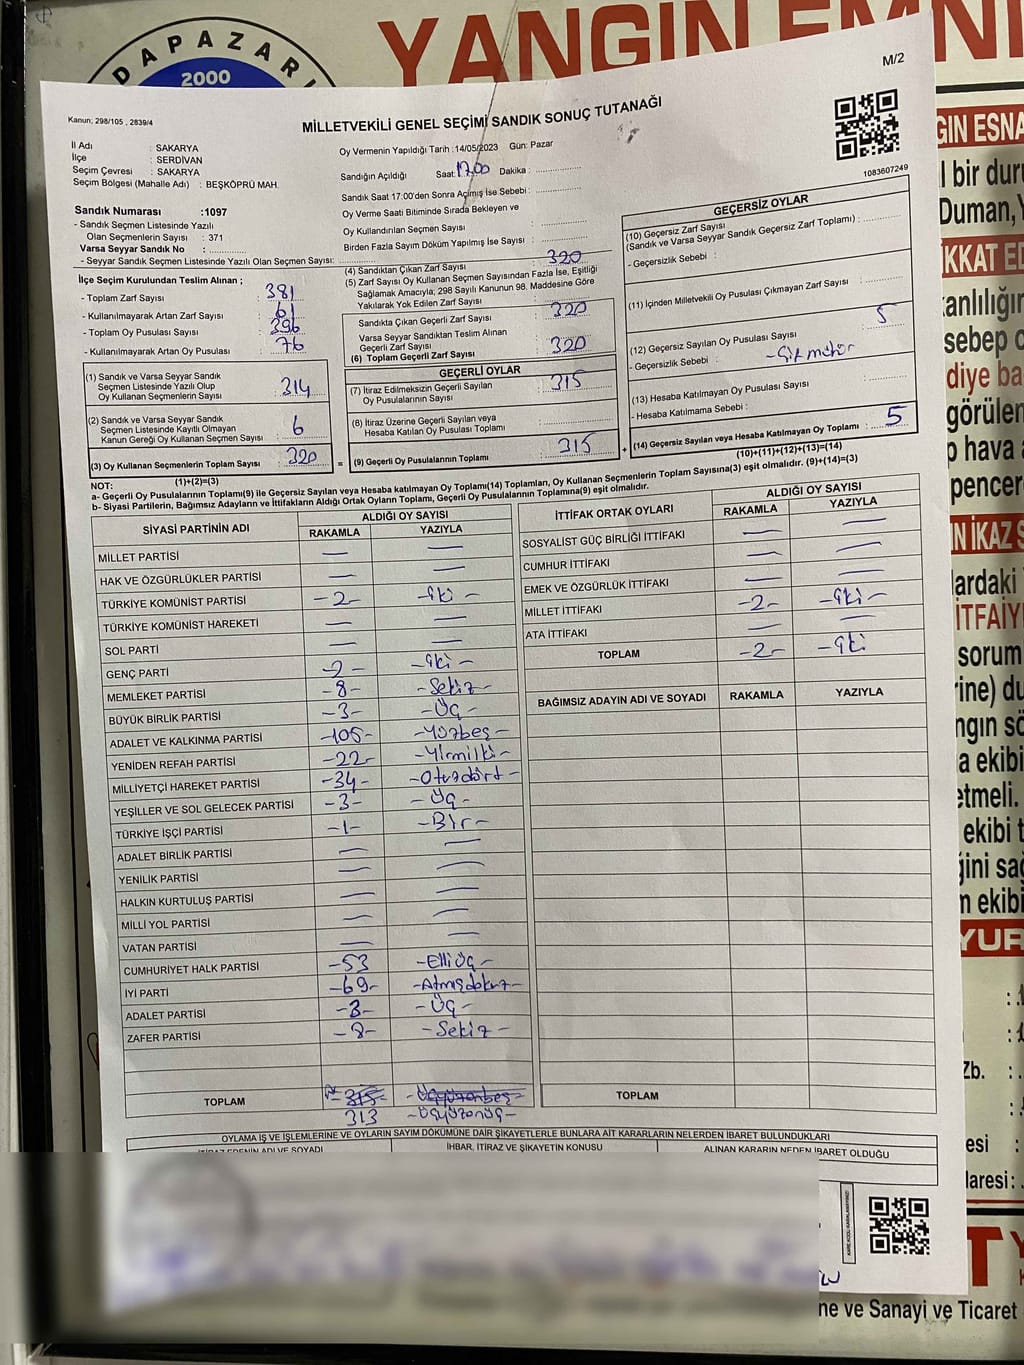 DAPAZARI
2000
YANGIN EMNİ
M/2
Kanun; 298/105 , 2839/4
MİLLETVEKİLİ GENEL SEÇİMİ SANDIK SONUÇ TUTANAĞI
1083607249
İl Adı : SAKARYA
İlçe : SERDİVAN
Seçim Çevresi : SAKARYA
Seçim Bölgesi (Mahalle Adı) : BEŞKÖPRÜ MAH.
Sandık Numarası :1097
- Sandık Seçmen Listesinde Yazılı
Olan Seçmenlerin Sayısı : 371
Varsa Seyyar Sandık No :
- Seyyar Sandık Seçmen Listesinde Yazılı Olan Seçmen Sayısı:
İlçe Seçim Kurulundan Teslim Alınan ;
- Toplam Zarf Sayısı : 381
- Kullanılmayarak Artan Zarf Sayısı : 61
- Toplam Oy Pusulası Sayısı : 396
- Kullanılmayarak Artan Oy Pusulası : 76
(1) Sandık ve Varsa Seyyar Sandık
Seçmen Listesinde Yazılı Olup
Oy Kullanan Seçmenlerin Sayısı : 314
(2) Sandık ve Varsa Seyyar Sandık
Seçmen Listesinde Kayıtlı Olmayan
Kanun Gereği Oy Kullanan Seçmen Sayısı : 6
(3) Oy Kullanan Seçmenlerin Toplam Sayısı : 320
(1)+(2)=(3)
Oy Vermenin Yapıldığı Tarih :14/05/2023 Gün: Pazar
Sandığın Açıldığı Saat: 17.00 Dakika :
Sandık Saat 17:00'den Sonra Açımış İse Sebebi :
Oy Verme Saati Bitiminde Sırada Bekleyen ve
Oy Kullandırılan Seçmen Sayısı :
Birden Fazla Sayım Döküm Yapılmış İse Sayısı :
(4) Sandıktan Çıkan Zarf Sayısı : 320
(5) Zarf Sayısı Oy Kullanan Seçmen Sayısından Fazla İse, Eşitliği
Sağlamak Amacıyla; 298 Sayılı Kanunun 98. Maddesine Göre
Yakılarak Yok Edilen Zarf Sayısı :
Sandıkta Çıkan Geçerli Zarf Sayısı : 320
Varsa Seyyar Sandıktan Teslim Alınan
Geçerli Zarf Sayısı :
(6) Toplam Geçerli Zarf Sayısı : 320
GEÇERLİ OYLAR
(7) İtiraz Edilmeksizin Geçerli Sayılan
Oy Pusulalarının Sayısı : 315
(8) İtiraz Üzerine Geçerli Sayılan veya
Hesaba Katılan Oy Pusulası Toplamı :
= (9) Geçerli Oy Pusulalarının Toplamı : 315
GEÇERSİZ OYLAR
(10) Geçersiz Zarf Sayısı
(Sandık ve Varsa Seyyar Sandık Geçersiz Zarf Toplamı) :
- Geçersizlik Sebebi :
(11) İçinden Milletvekili Oy Pusulası Çıkmayan Zarf Sayısı :
(12) Geçersiz Sayılan Oy Pusulası Sayısı : 5
- Geçersizlik Sebebi :
(13) Hesaba Katılmayan Oy Pusulası Sayısı :
- Hesaba Katılmama Sebebi :
+ (14) Geçersiz Sayılan veya Hesaba Katılmayan Oy Toplamı : 5
(10)+(11)+(12)+(13)=(14)
NOT:
a- Geçerli Oy Pusulalarının Toplamı(9) ile Geçersiz Sayılan veya Hesaba katılmayan Oy Toplamı(14) Toplamları, Oy Kullanan Seçmenlerin Toplam Sayısına(3) eşit olmalıdır. (9)+(14)=(3)
b- Siyasi Partilerin, Bağımsız Adayların ve İttifakların Aldığı Ortak Oyların Toplamı, Geçerli Oy Pusulalarının Toplamına(9) eşit olmalıdır.
SİYASİ PARTİNİN ADI ALDIĞI OY SAYISI
RAKAMLA YAZIYLA
MİLLET PARTİSİ — —
HAK VE ÖZGÜRLÜKLER PARTİSİ — —
TÜRKİYE KOMÜNİST PARTİSİ -2- -iki-
TÜRKİYE KOMÜNİST HAREKETİ — —
SOL PARTİ — —
GENÇ PARTİ -2- -iki-
MEMLEKET PARTİSİ -8- -Sekiz-
BÜYÜK BİRLİK PARTİSİ -3- -Üç-
ADALET VE KALKINMA PARTİSİ -105- -Yüzbeş-
YENİDEN REFAH PARTİSİ -22- -Yirmiiki-
MİLLİYETÇİ HAREKET PARTİSİ -34- -Otuzdört-
YEŞİLLER VE SOL GELECEK PARTİSİ -3- -Üç-
TÜRKİYE İŞÇİ PARTİSİ -1- -Bir-
ADALET BİRLİK PARTİSİ — —
YENİLİK PARTİSİ — —
HALKIN KURTULUŞ PARTİSİ — —
MİLLİ YOL PARTİSİ — —
VATAN PARTİSİ — —
CUMHURİYET HALK PARTİSİ -53 -Elliüç-
İYİ PARTİ -69- -Atmışdokuz-
ADALET PARTİSİ -3- -Üç-
ZAFER PARTİSİ -8- -Sekiz-
TOPLAM 315 -Üçyüzonbeş-
313 -Üçyüzonüç-
İTTİFAK ORTAK OYLARI ALDIĞI OY SAYISI
RAKAMLA YAZIYLA
SOSYALİST GÜÇ BİRLİĞİ İTTİFAKI — —
CUMHUR İTTİFAKI — —
EMEK VE ÖZGÜRLÜK İTTİFAKI — —
MİLLET İTTİFAKI -2- -iki-
ATA İTTİFAKI — —
TOPLAM -2- -iki
BAĞIMSIZ ADAYIN ADI VE SOYADI RAKAMLA YAZIYLA
TOPLAM
OYLAMA İŞ VE İŞLEMLERİNE VE OYLARIN SAYIM DÖKÜMÜNE DAİR ŞİKAYETLERLE BUNLARA AİT KARARLARIN NELERDEN İBARET BULUNDUKLARI
İTİRAZ EDENİN ADI VE SOYADI İHBAR, İTİRAZ VE ŞİKAYETİN KONUSU ALINAN KARARIN NEDEN İBARET OLDUĞU
GIN ESNA
l bir duru
Duman,
KKAT ED
anlılığın
sebep o
diye ba
görülen
p hava a
pencer
N İKAZ S
lardaki
İTFAİY
sorum
rine) du
ngın sö
a ekibi
etmeli.
ekibi t
ğini sağ
n ekibi
YUR
Zb. :
esi :
laresi:
T
ne ve Sanayi ve Ticaret